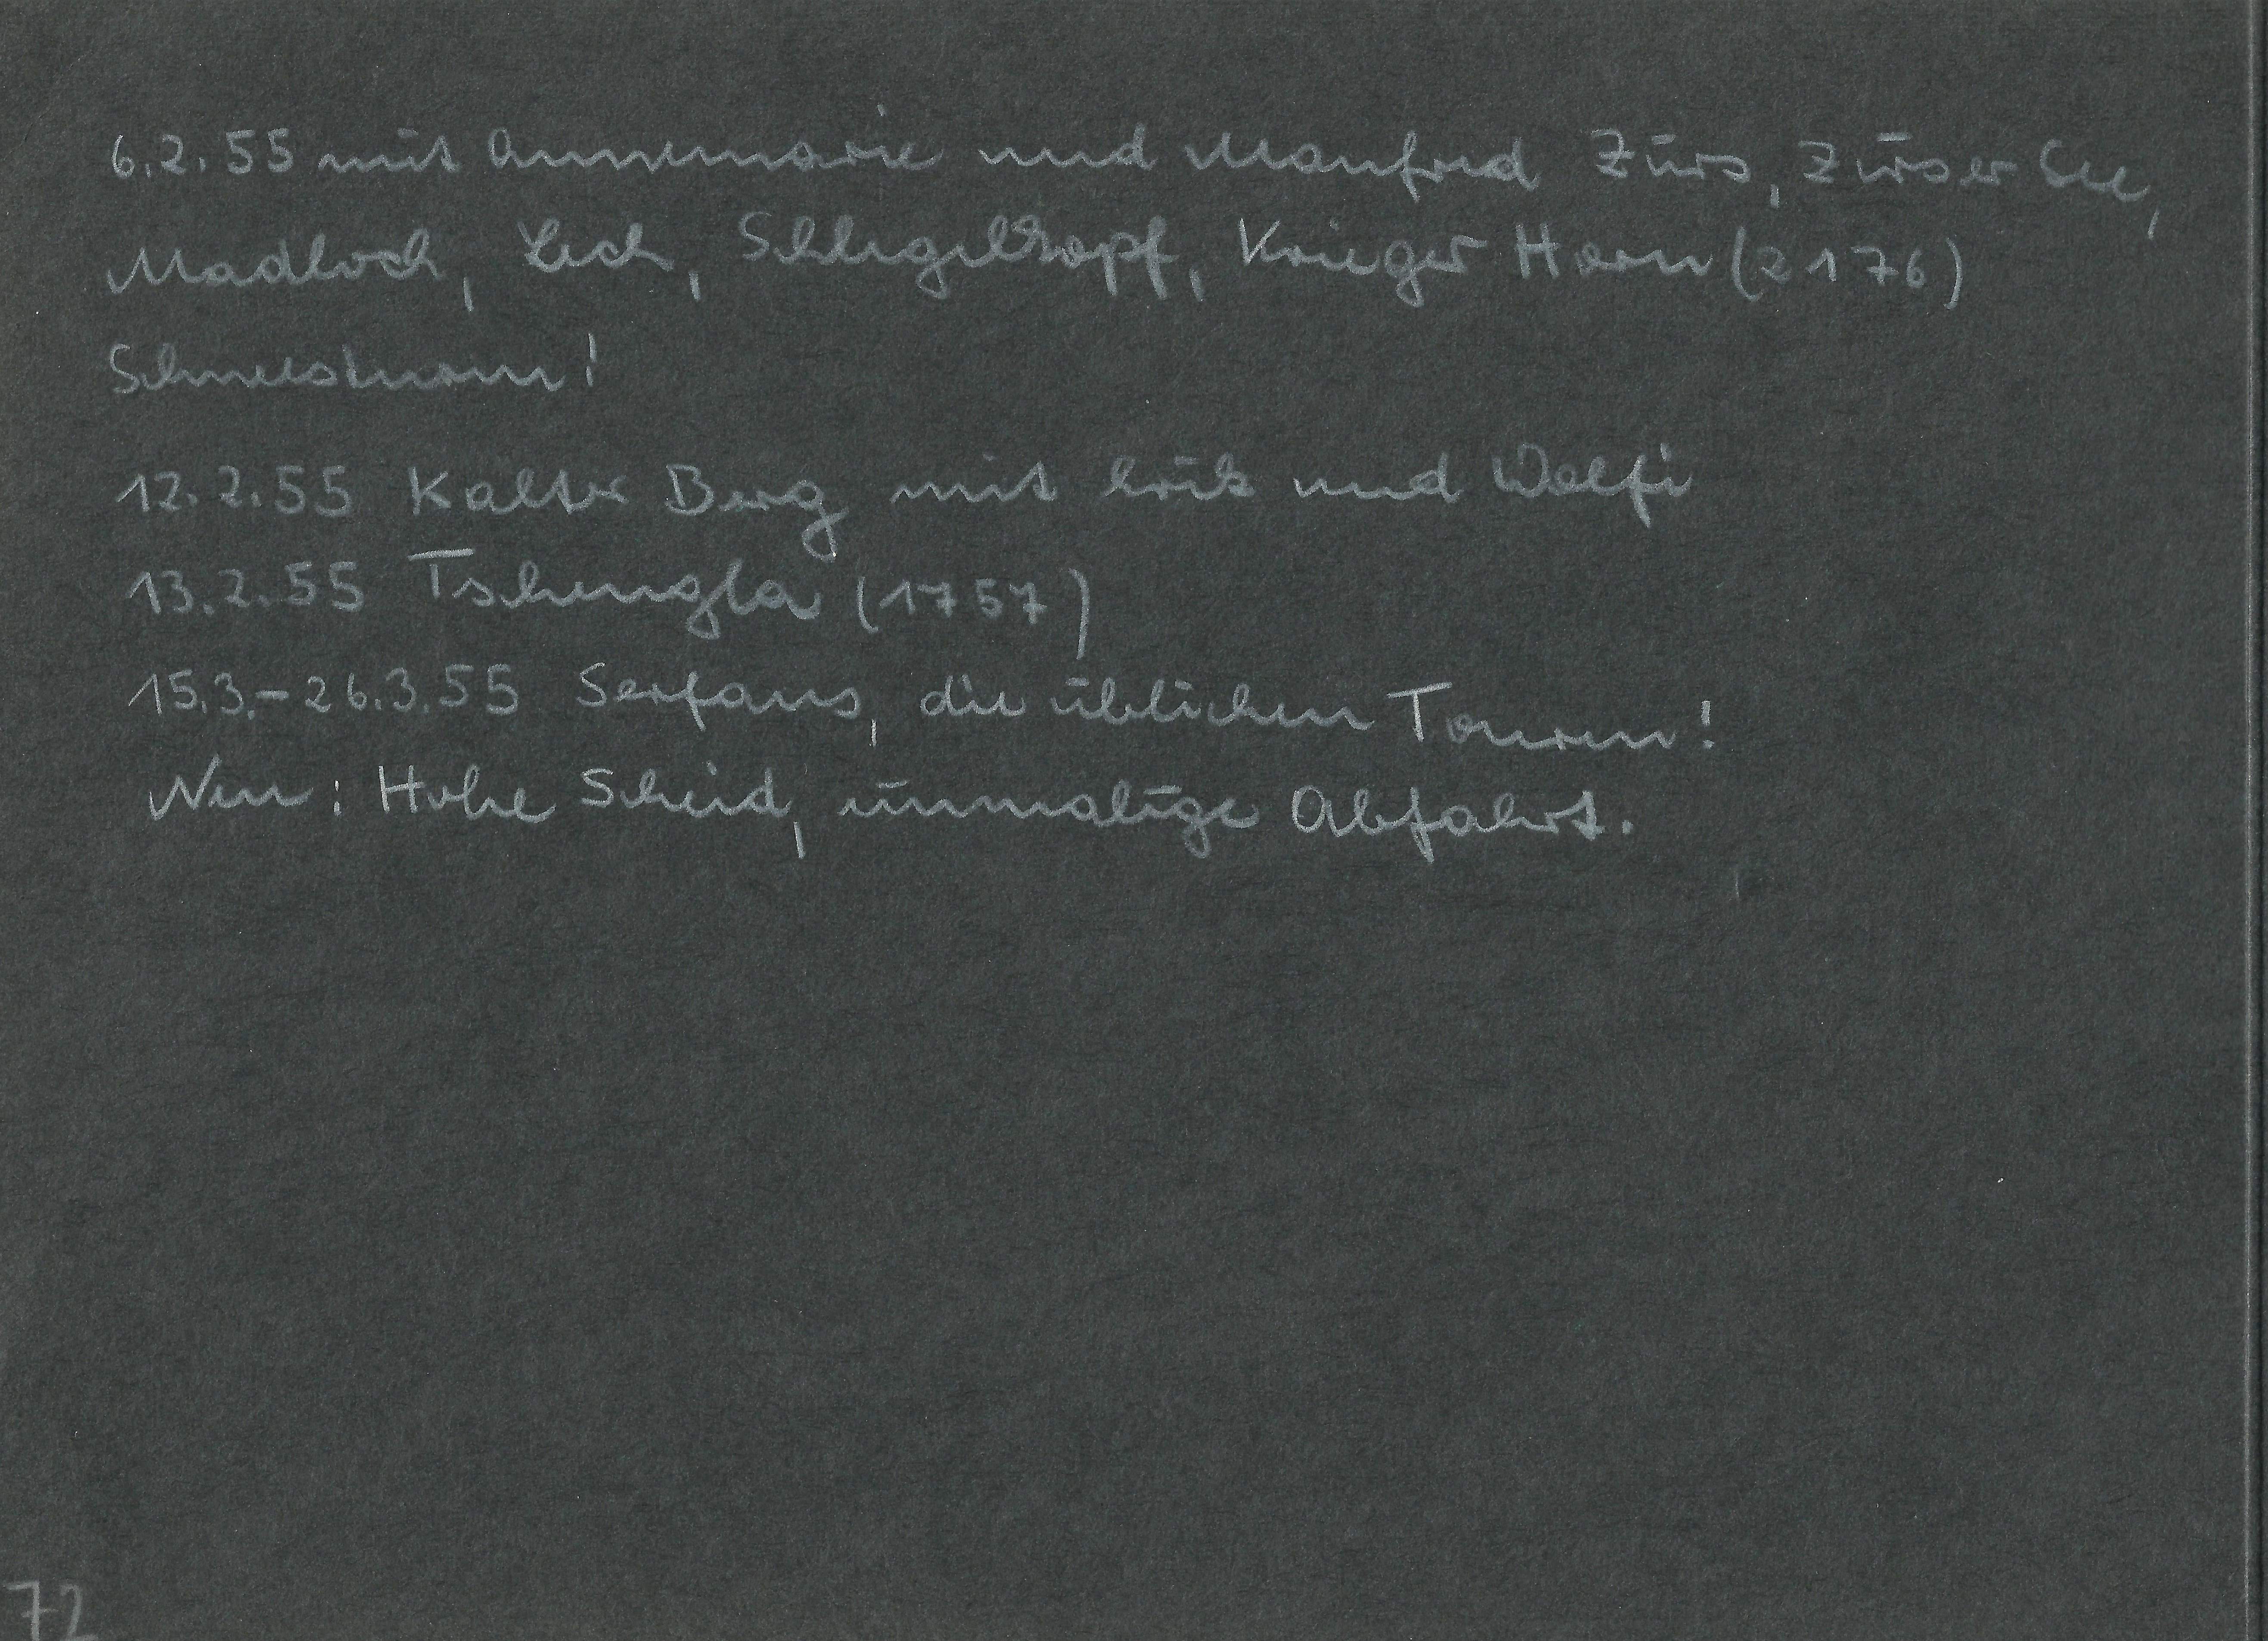 6.2.55 mit Annemarie und Manfred Zürs, Zürser See,
Madloch, Lech, Schlegelkopf, Krieger Horn (2176)
Schneesturm!
12.2.55 Kalter Berg mit Erik und Wolfi
13.2.55 Tschengla (1757)
15.3.-26.3.55 Serfaus, die üblichen Touren!
Neu: Hohe Scheid, einmalige Abfahrt.
72